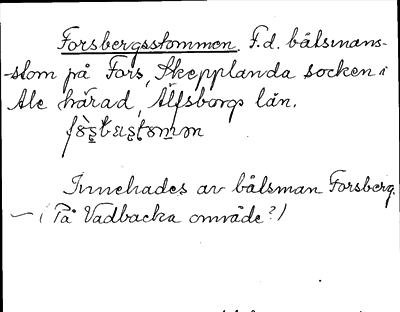 Forsbergsstommen. F.d. båtsmans-
-stom på Fors, Skepplanda socken i
Ale härad, Älfsborgs län.
Innehades av båtsman Forsberg.
— (På Vadbacka område?)